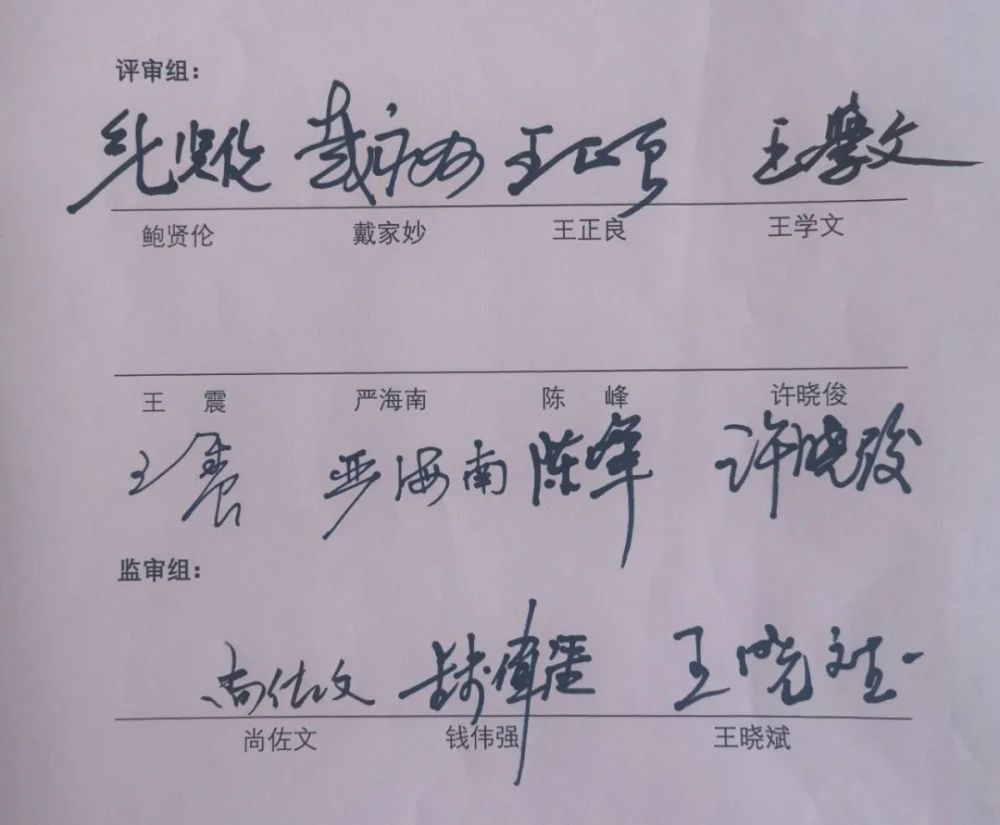 评审组：
鲍贤伦 戴家妙 王正良 王学文
鲍贤伦 戴家妙 王正良 王学文
王 震 严海南 陈 峰 许晓俊
王震 严海南 陈峰 许晓俊
监审组：
尚佐文 钱伟强 王晓斌
尚佐文 钱伟强 王晓斌